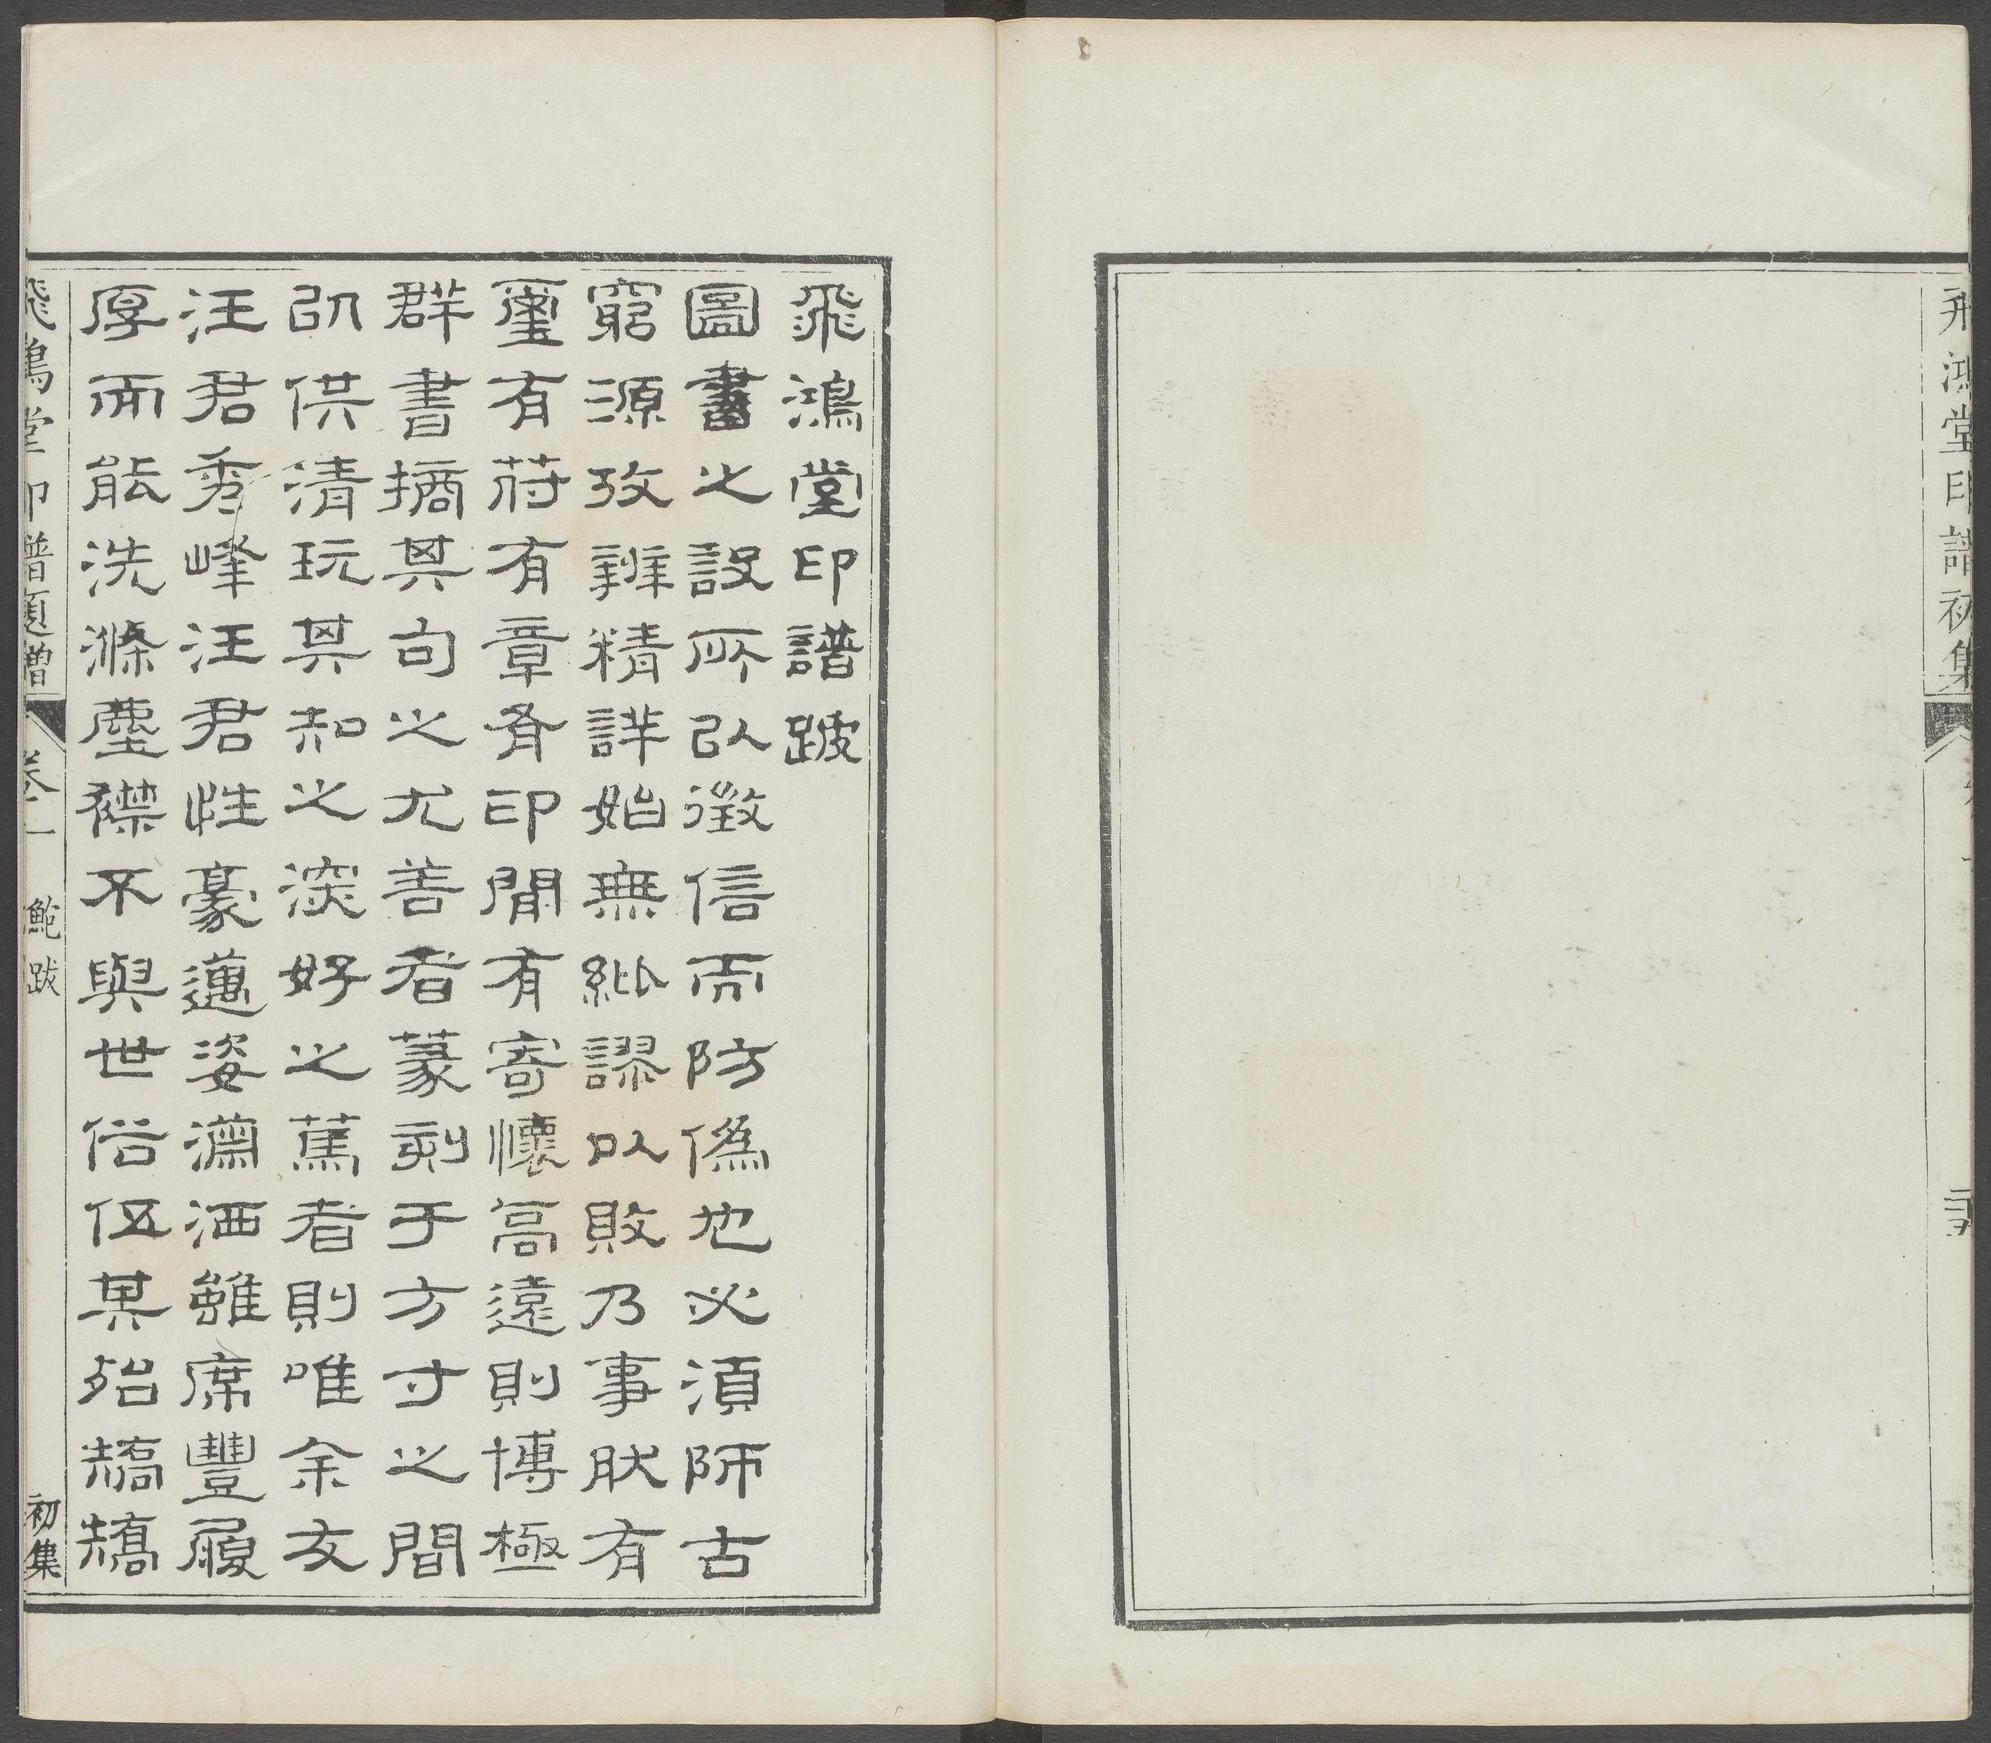 飛鴻堂印譜初集
飛鴻堂印譜跛
圖書之設所以徵信而防偽也必須師古
窮源攷辨精詳始無紕謬以敗乃事肰有
璽有苻有章有印間有寄懷高遠則博極
群書摘其句之尤善者篆刻于方寸之間
以供清玩其知之深好之篤者則唯余友
汪君秀峰汪君性豪邁姿瀟洒雖席豐履
厚而能洗滌塵襟不與世俗伍其殆矯矯
飛鴻堂印譜題增
卷二
鮑跋
初集